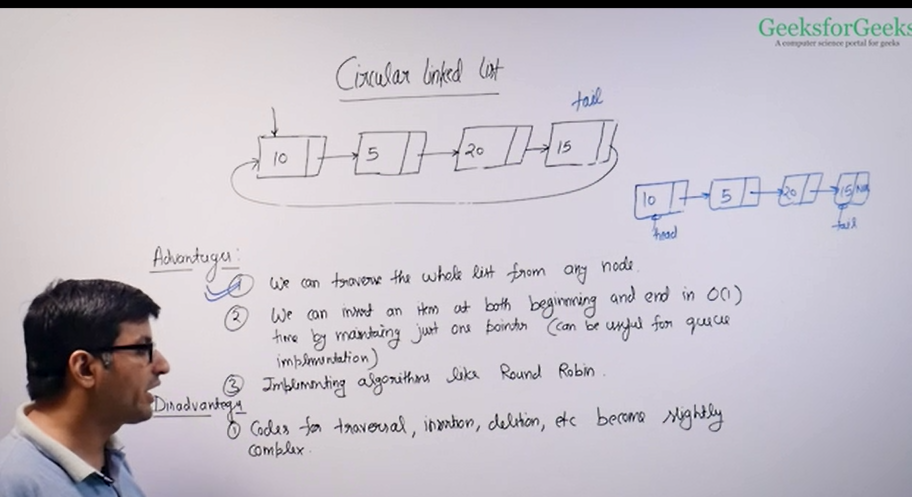 GeeksforGeeks
A computer science portal for geeks
Circular linked list
tail
10 5 20 15
10 5 20 15
head tail
Advantages:
① We can traverse the whole list from any node.
② We can insert an item at both beginning and end in O(1)
time by maintaing just one pointer (can be useful for queue
implmentation)
③ Implementing algorithms like Round Robin.
Disadvantages
① Codes for traversal, insertion, deletion, etc become slightly
complex.